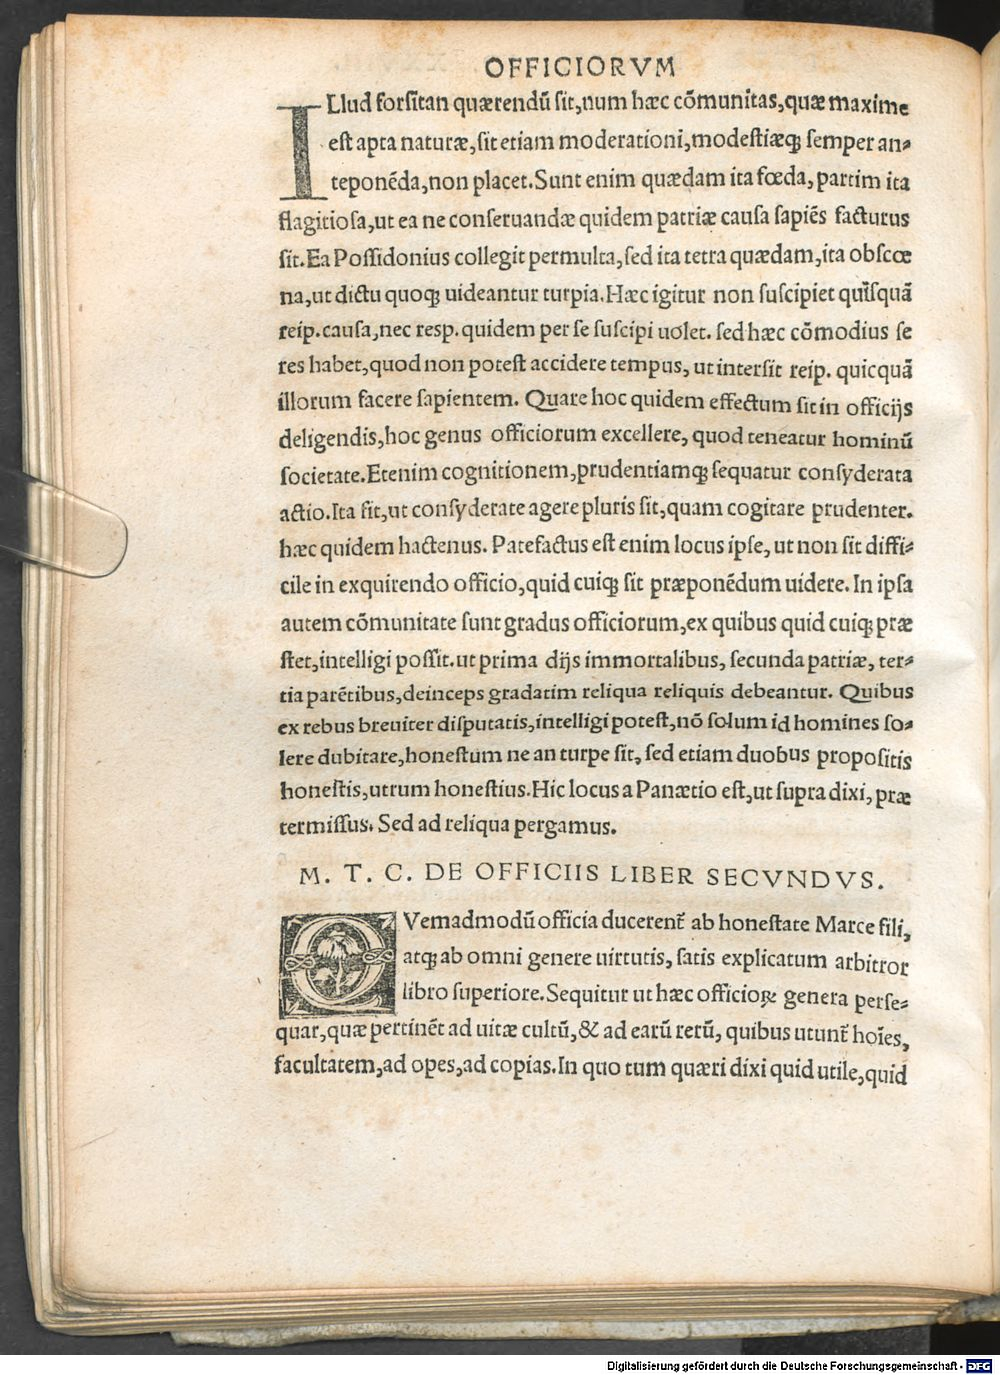 OFFICIORVM
ILlud forsitan quærendũ sit, num hæc cõmunitas, quæ maxime
est apta naturæ, sit etiam moderationi, modestiæq; semper an-
teponẽda, non placet. Sunt enim quædam ita fœda, partim ita
flagitiosa, ut ea ne conseruandæ quidem patriæ causa sapiẽs facturus
sit. Ea Possidonius collegit permulta, sed ita tetra quædam, ita obscœ
na, ut dictu quoq; uideantur turpia. Hæc igitur non suscipiet quisquã
reip. causa, nec resp. quidem per se suscipi uolet. sed hæc cõmodius se
res habet, quod non potest accidere tempus, ut intersit reip. quicquã
illorum facere sapientem. Quare hoc quidem effectum sit in officijs
deligendis, hoc genus officiorum excellere, quod teneatur hominũ
societate. Etenim cognitionem, prudentiamq; sequatur consyderata
actio. Ita fit, ut consyderate agere pluris sit, quam cogitare prudenter.
hæc quidem hactenus. Patefactus est enim locus ipse, ut non sit diffi-
cile in exquirendo officio, quid cuiq; sit præponẽdum uidere. In ipsa
autem cõmunitate sunt gradus officiorum, ex quibus quid cuiq; præ
stet, intelligi possit. ut prima dijs immortalibus, secunda patriæ, ter-
tia parẽtibus, deinceps gradatim reliqua reliquis debeantur. Quibus
ex rebus breuiter disputatis, intelligi potest, nõ solum id homines so-
lere dubitare, honestum ne an turpe sit, sed etiam duobus propositis
honestis, utrum honestius. Hic locus a Panætio est, ut supra dixi, præ
termissus. Sed ad reliqua pergamus.
M. T. C. DE OFFICIIS LIBER SECVNDVS.
QVemadmodũ officia ducerent̃ ab honestate Marce fili,
atq; ab omni genere uirtutis, satis explicatum arbitror
libro superiore. Sequitur ut hæc officioꝝ genera perse-
quar, quæ pertinẽt ad uitæ cultũ, & ad earũ rerũ, quibus utunt̃ hoĩes,
facultatem, ad opes, ad copias. In quo tum quæri dixi quid utile, quid
Digitalisierung gefördert durch die Deutsche Forschungsgemeinschaft - DFG